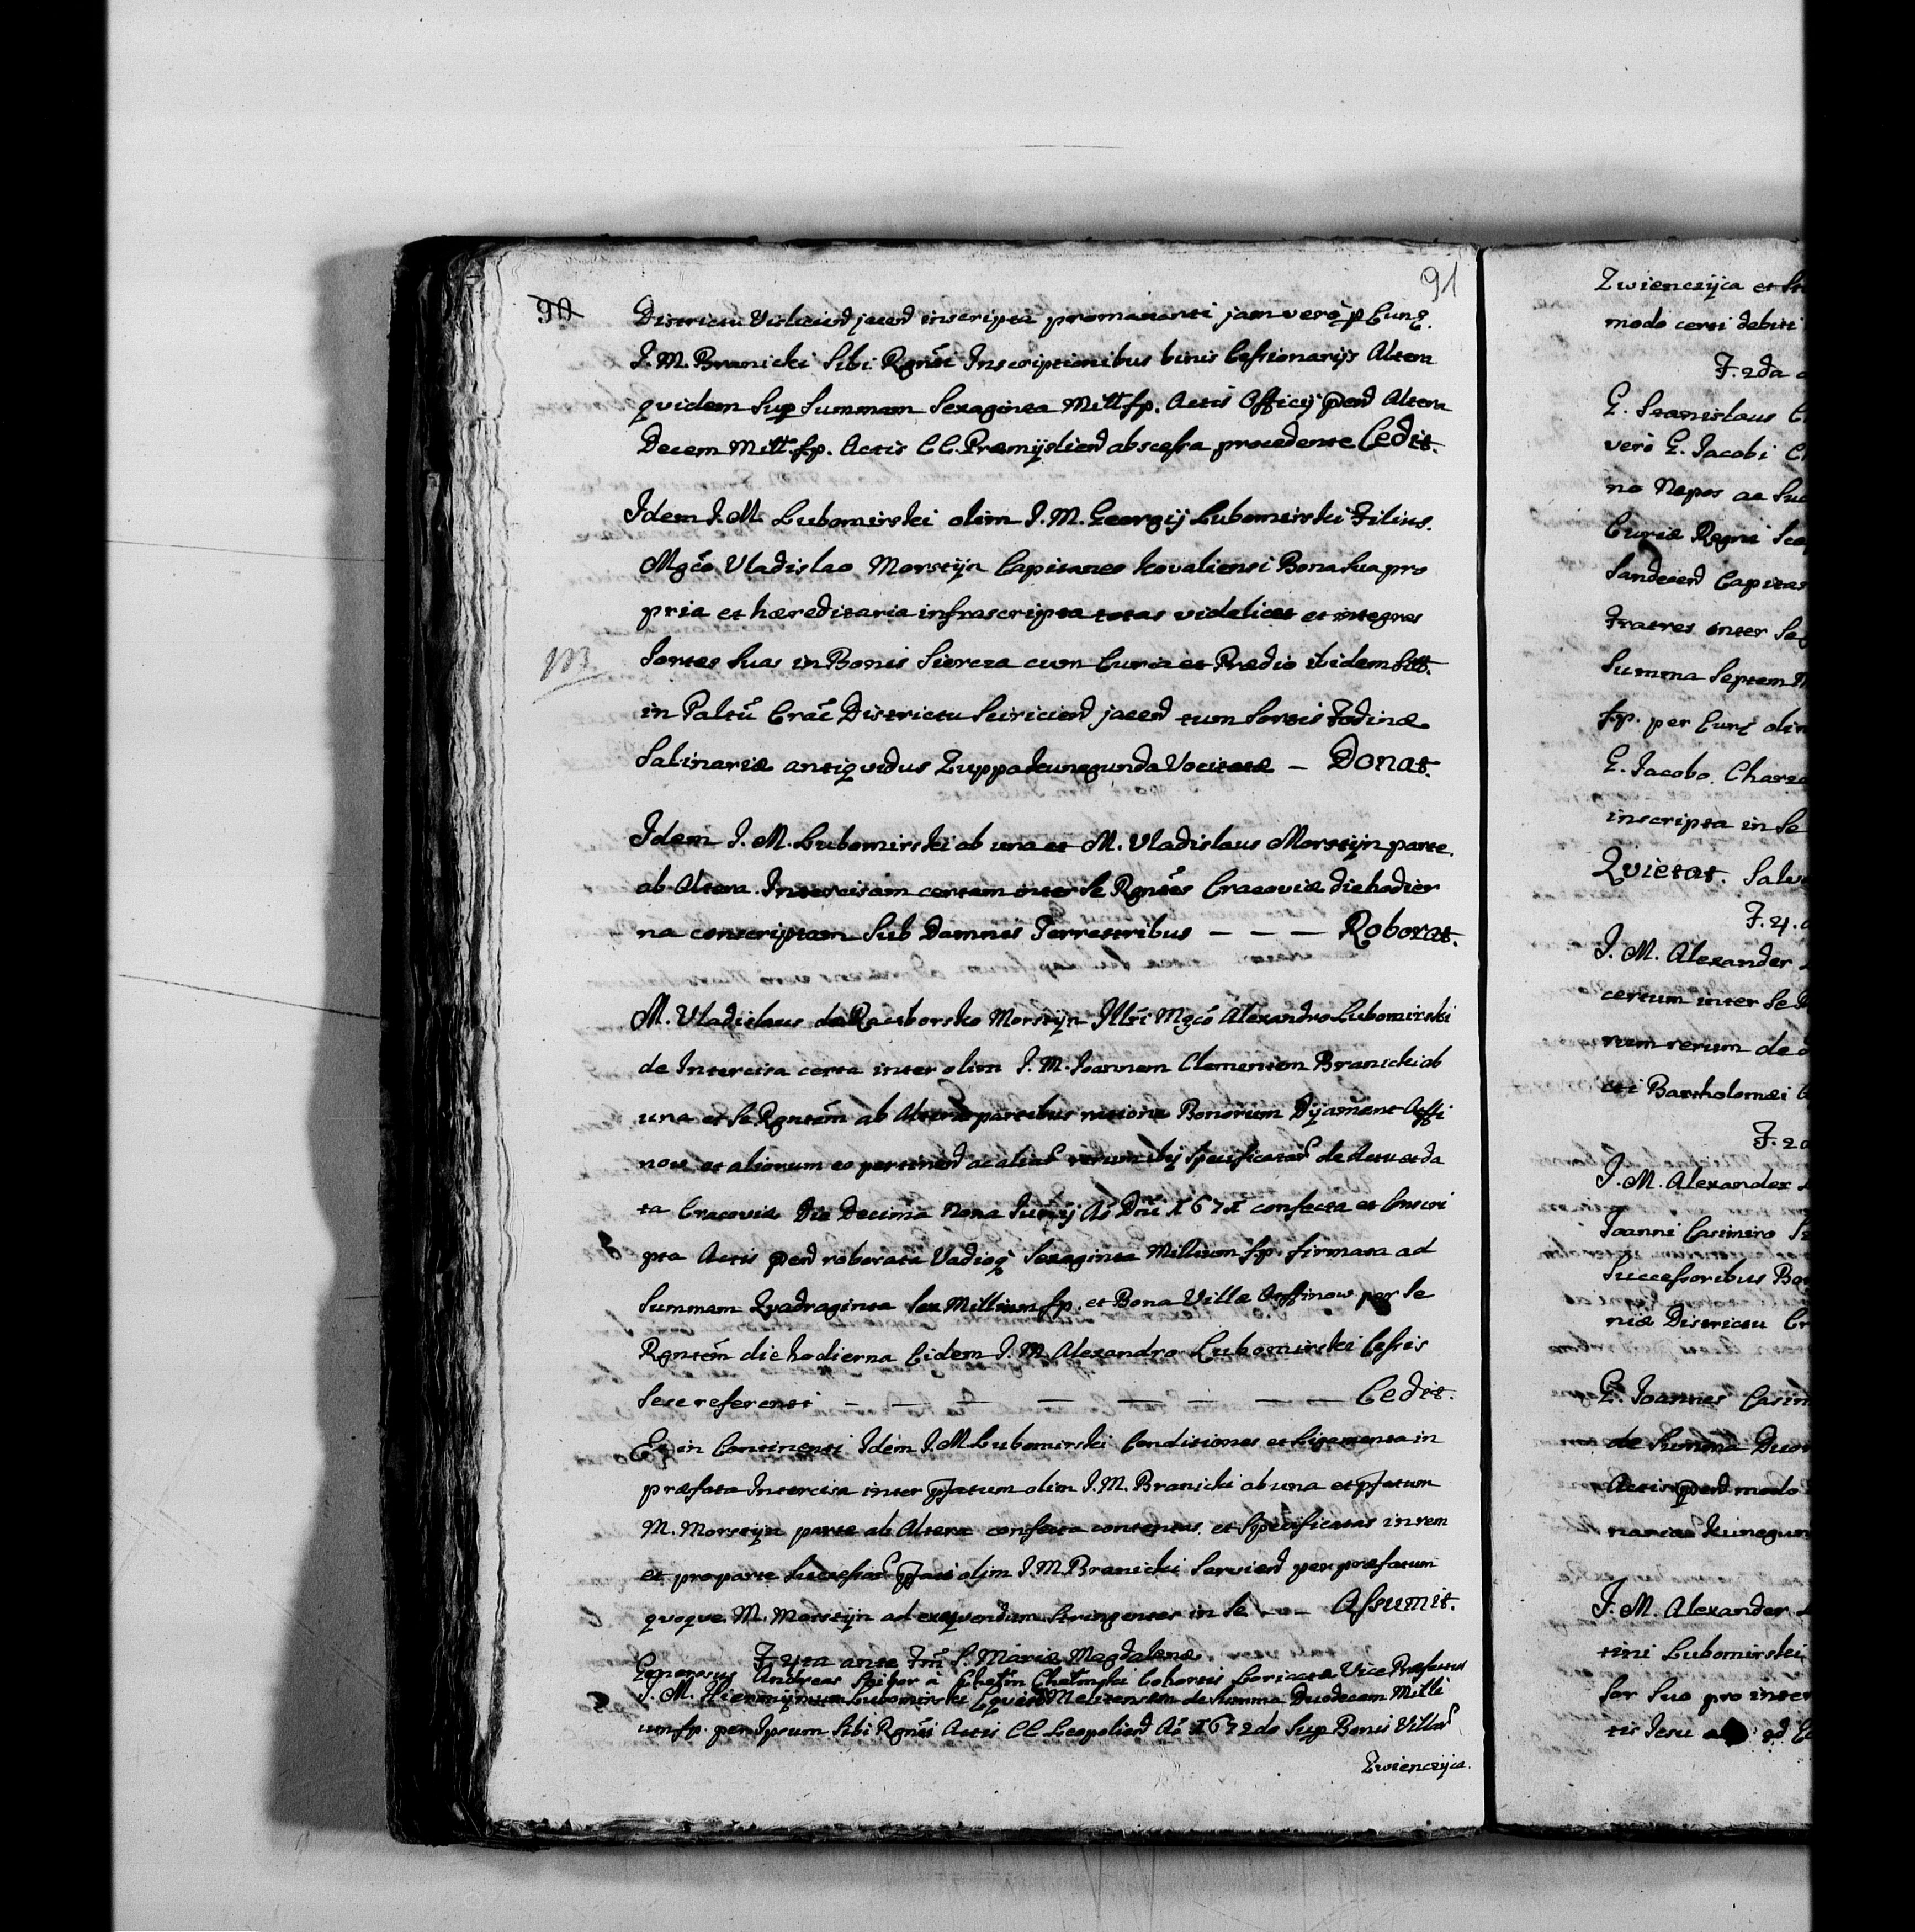 90
91
Districtu Vislicien jacen inscripta promananti jam vero p Eunq.
I. M. Branicki Sibi Rgnti Inscriptionibus binis Cessionarijs Altera
quidem Sup Summam Sexaginta Mill fp. Actis Officij pen Altera
Decem Mill. fp. Actis CC. Præmijslien abscessa procedente Cedit.
Idem I. M. Lubomirski olim I. M. Georgij Lubomirski Filius.
Mgco Vladislao Morstijn Capitaneo Kovaliensi Bona sua pro
pria et hæreditaria infrascripta totas videlicet et integras
103
Sortes Suas in Bonis Siercza cum Curia et Prædio ibidem
in Paltu Crac Districtu Sciricien jacen tum Sortis Fodinæ
Salinariæ antiqvidus Zuppa Kunegunda Vocitatæ – Donat.
Idem I. M. Lubomirski ab una et M. Vladislaus Morstijn parte
ab Altera Intercisam certam inter Se Rgntes Cracoviæ die hodier
na conscriptam Sub Damnis Terrestribus – – – Roborat.
M. Vladislaus de Raciborsko Morstijn Illri Mgco Alexandro Lubomirski
de Intercisa certa inter olim I. M. Joannem Clementem Branicki ab
una et Se Rgntem ab Altera partibus ratione Bonorum Dijament
now et aliorum eo pertinen ac aliar rerum ibij Specificatar de Actu et da
ta Cracoviæ Die Decima Nona Junij Ao Dni 1671 confecta et Conscri
pta Actis pen roborata Vadioq Sexaginta Millium fp. firmata ad
Summam Qvadraginta Sex Millium fp. et Bona Villæ per Se
Rgntem die hodierna Eidem I. M. Alexandro Lubomirski Cessis
Sese referenti – – – – – – – Cedit.
Et in Continenti Idem I. M. Lubomirski Conditiones et Ligamenta in
præfata Intercisa inter pfatum olim I. M. Branicki ab una et pfatum
M. Morstijn parte ab Altera confecta contentas et Specificatas in rem
et pro parte Successar pfati olim I. M. Branicki Servien per præfatum
quoque M. Morstijn ad exeqvendum Stringentes in Se – – Assumit.
F. 4ta ante Fm S. Mariæ Magdalenæ.
Generosus Andreas Scibor à Chełm Chełmski Cohortis Loricatæ Vice Præfectus
I. M. Hieronijmum Lubomirski Eqvitem Melitensem de Summa Duodecem Milli
um fp. per Ipsum Sibi Rgnti Actis CC Leopolien Ao 1672do Sup Bonis Villar
Zwienczijca.
Zwienczijca et
modo certi debiti
F. 2da
G. Stanislaus
verò G. Jacobi
no Nepos ac Suc
Curiæ Regni
Sandecien Capitan
Fratres inter Se
Summa Septem M
fp. per Eunq olim
G. Jacobo
inscripta in Se
Qvietat. Salv
F. 4.
I. M. Alexander
certum inter Se R
rum rerum de
cti Bartholomæi
F. 2d
I. M. Alexander
Joanni Casimiro
Successoribus Bon
niæ Districtu Cr
G. Joannes Casim
de Summa Duo
Actis pen modo
nariæ Kunegun
I. M. Alexander
tini Lubomirski
sor Suo pro inter
tis Jesu